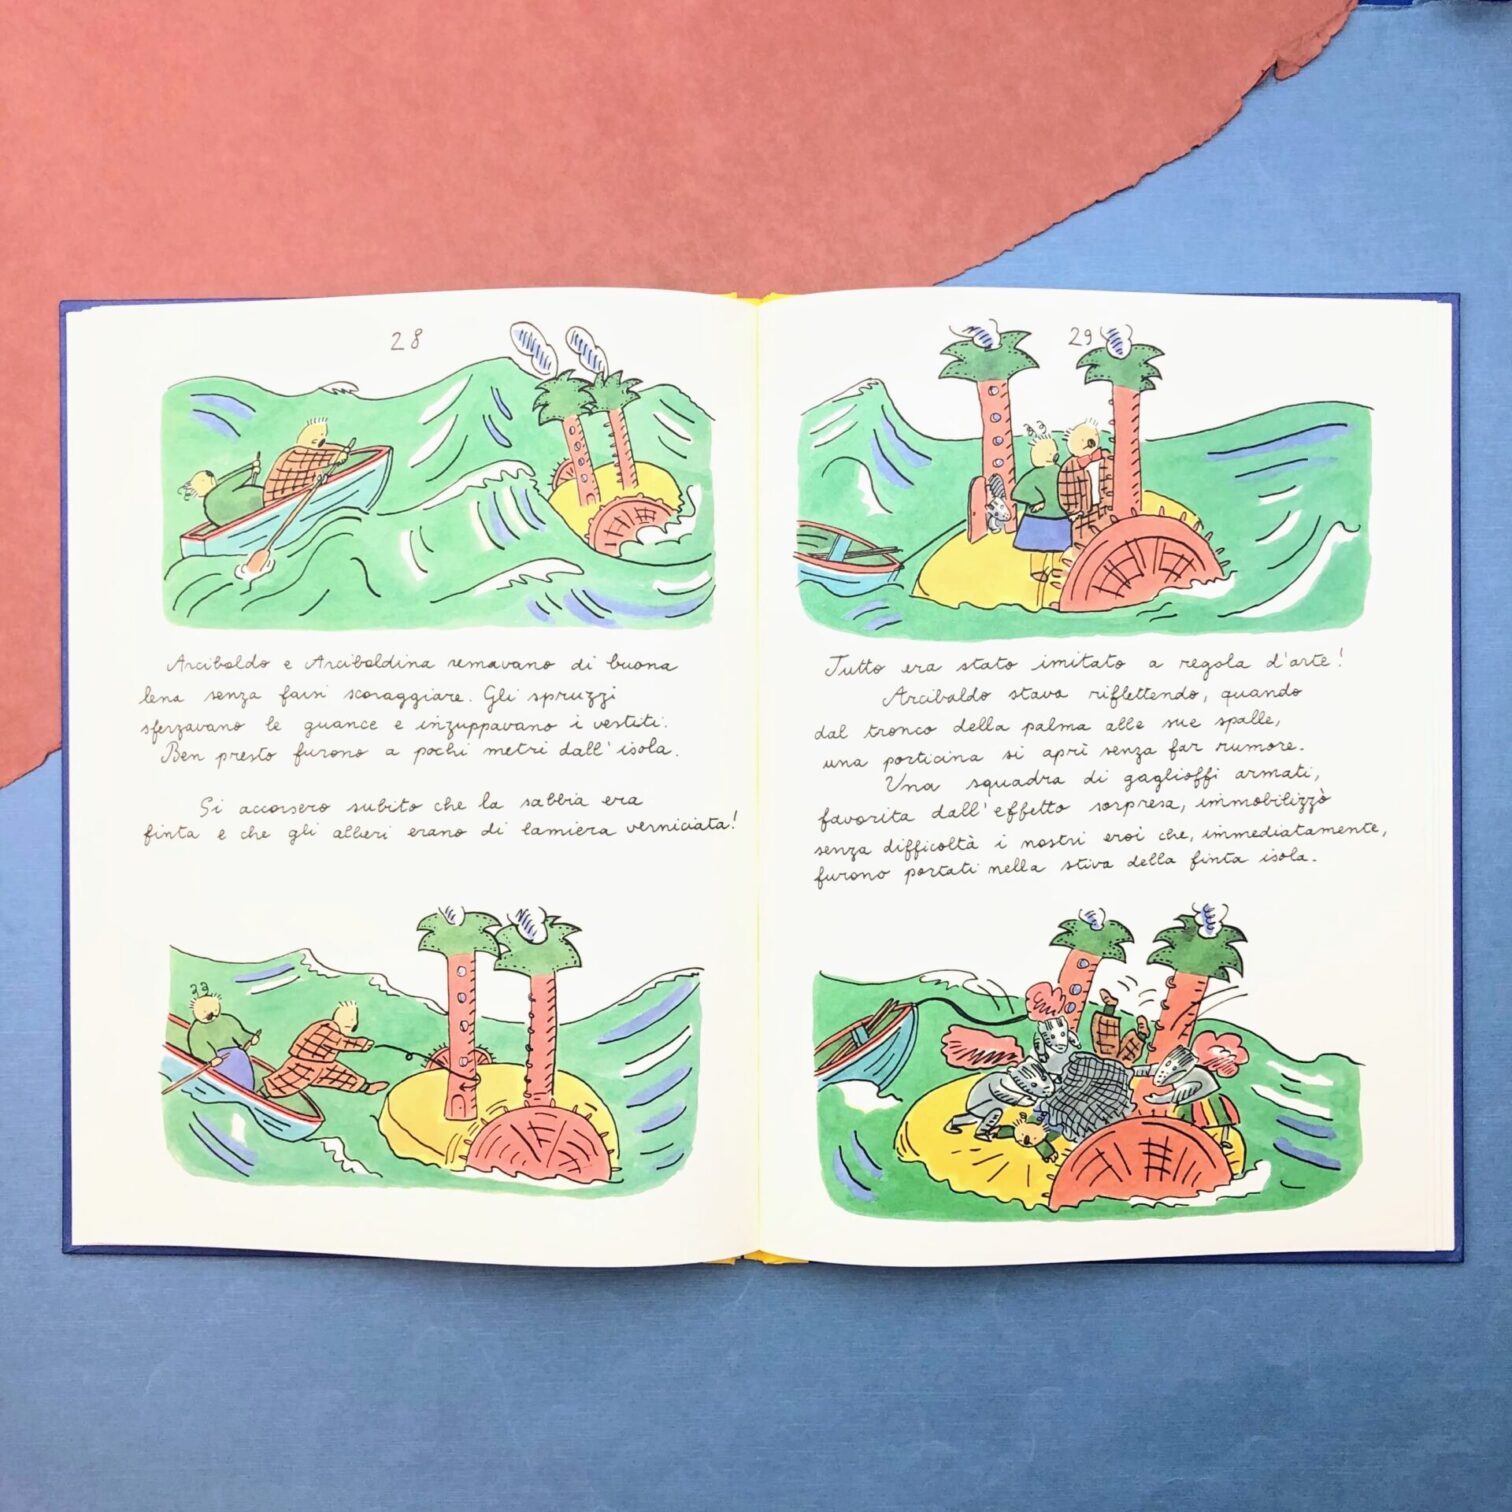 28
Arcibaldo e Arcibaldina remavano di buona
lena senza farsi scoraggiare. Gli spruzzi
sferzavano le guance e inzuppavano i vestiti.
Ben presto furono a pochi metri dall'isola.
Si accorsero subito che la sabbia era
finta e che gli alberi erano di lamiera verniciata!
29
Tutto era stato imitato a regola d'arte!
Arcibaldo stava riflettendo, quando
dal tronco della palma alle sue spalle,
una porticina si aprì senza far rumore.
Una squadra di gaglioffi armati,
favorita dall'effetto sorpresa, immobilizzò
senza difficoltà i nostri eroi che, immediatamente,
furono portati nella stiva della finta isola.